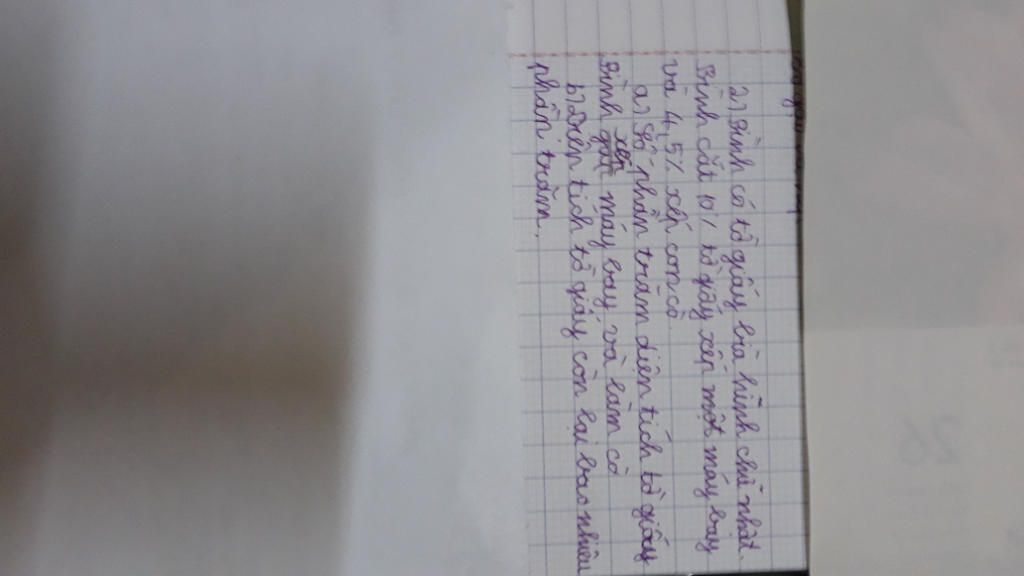 2) Bình có tờ giấy bìa hình chữ nhật.
Bình cắt 10% tờ giấy xếp một máy bay
và 4,5% xếp con cò.
a) Số phần trăm diện tích tờ giấy
Bình xếp máy bay và làm cò
b) Diện tích tờ giấy còn lại bao nhiêu
phần trăm.
26